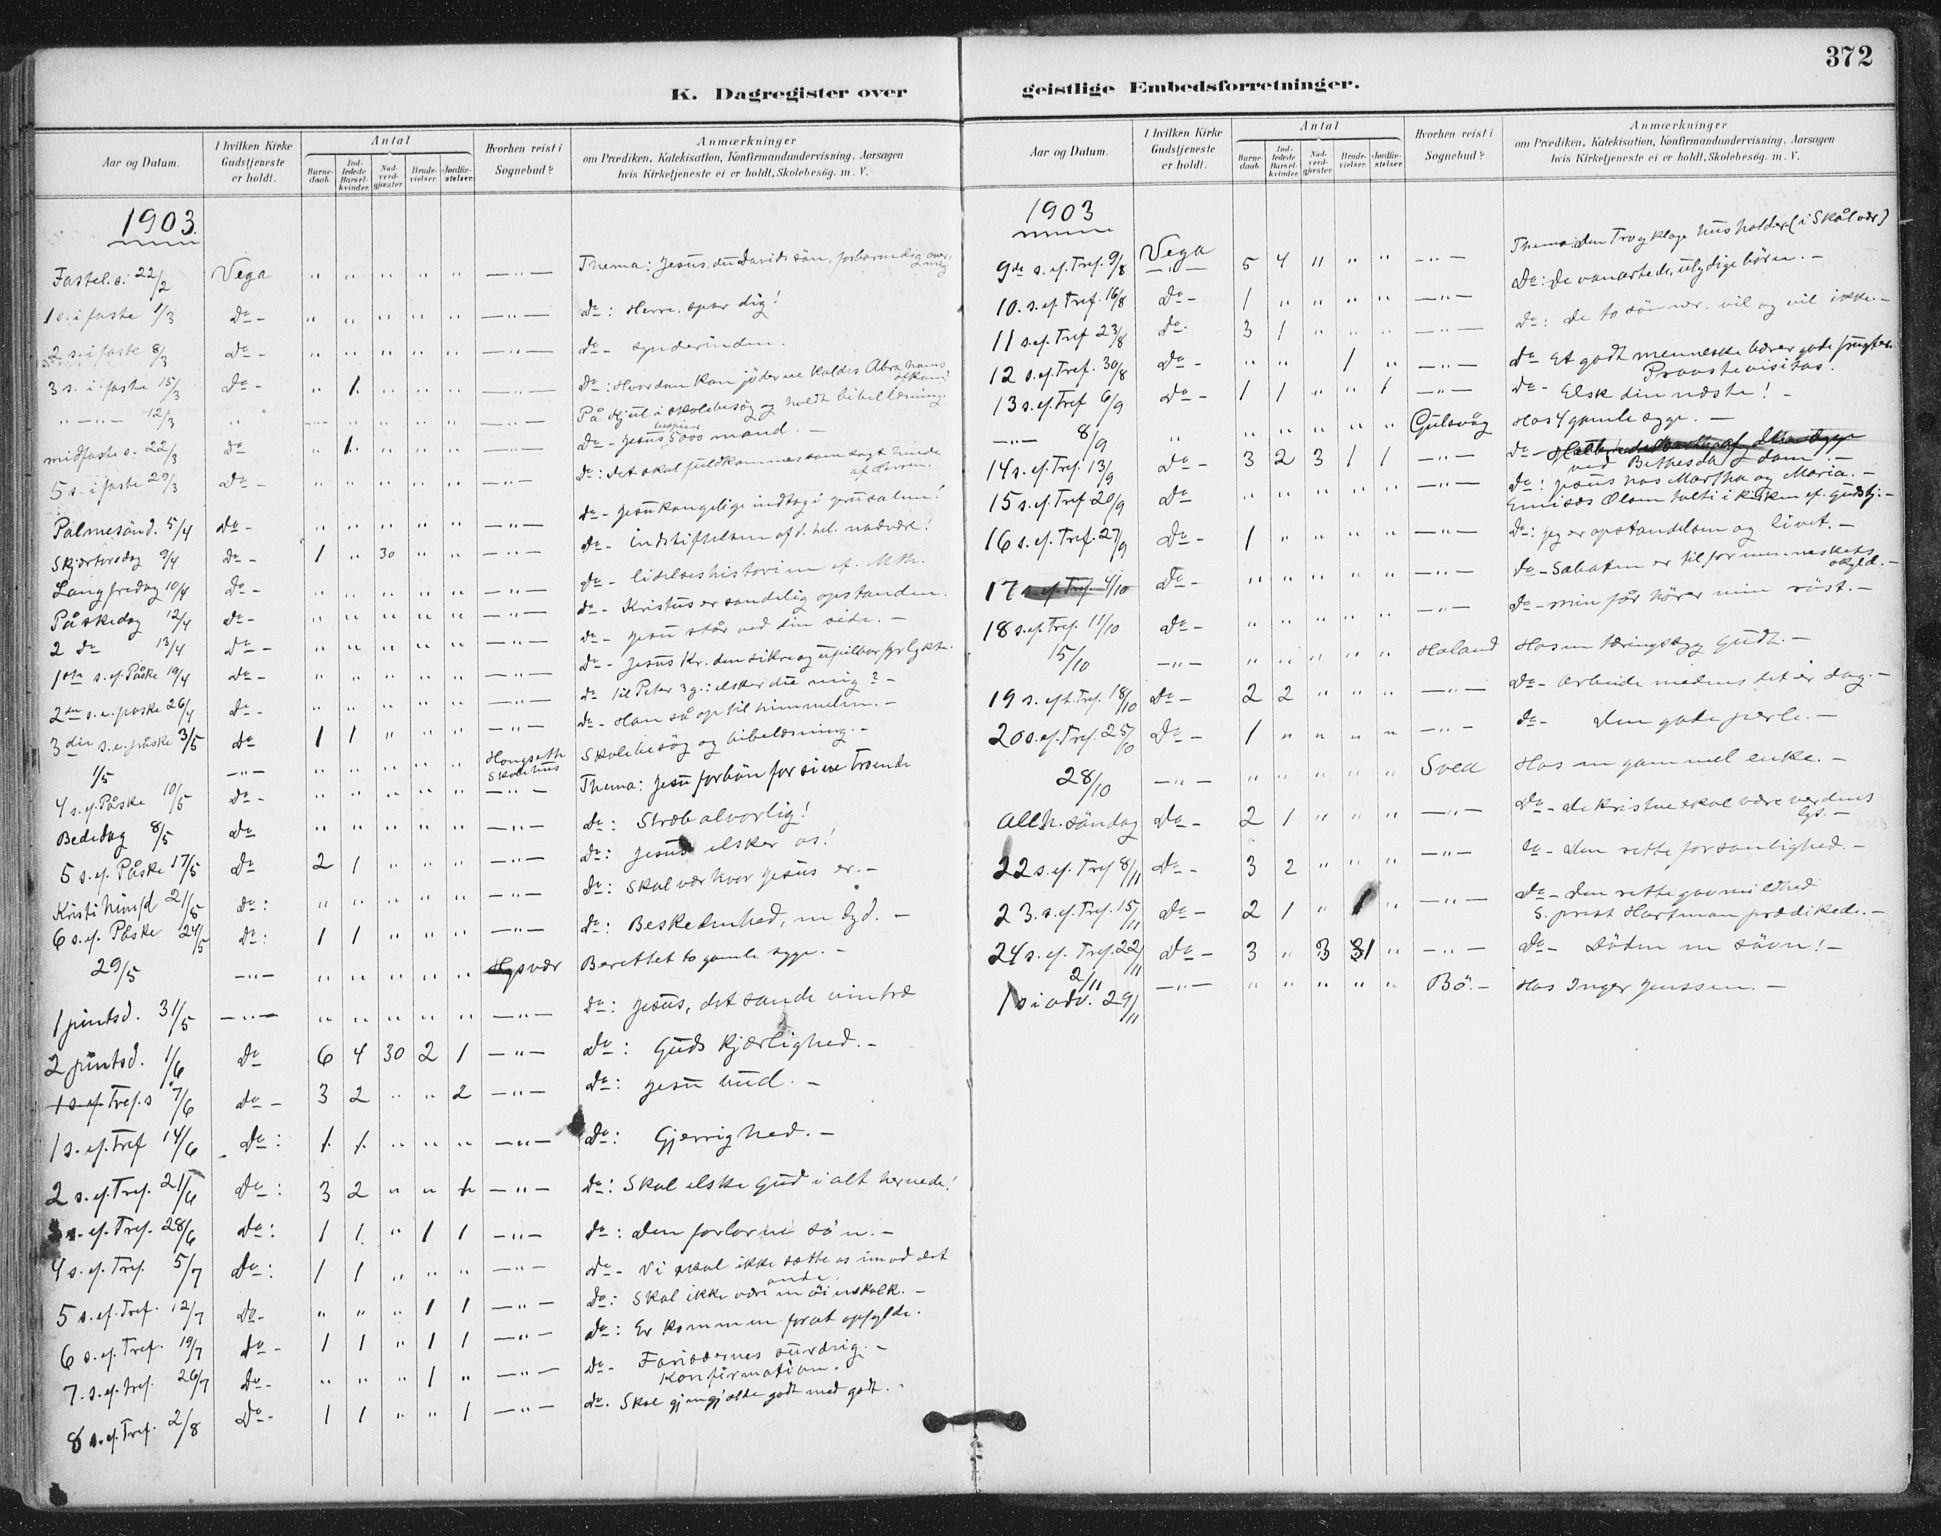 372
K. Dagregister over geistlige Embedsforretninger.
Aar og Datum.
I hvilken Kirke Gudstjeneste er holdt.
Antal
Barnedaab.
Indledede Barselkvinder.
Nadverdgjæster.
Brudevielser.
Jordfæstelser.
Hvorhen reist i Sognebud?
Anmærkninger
om Prædiken, Katekisation, Konfirmandundervisning, Aarsagen
hvis Kirketjeneste ei er holdt, Skolebesög, m. V.
1903.
Fastel.s. 22/2 Vega " " " " " —"— Thema: Jesus, du Davids sön, forbarm dig over mig
1 s. i faste 1/3 do - " " " " " —"— do: Herre, spar dig!
2 s. i faste 8/3 do - " " " " " —"— do - Synderinden.
3 s. i faste 15/3 do - " 1 " " " —"— do: Hvordan kan jöderne kaldes Abrahams
—"— 12/3 " På i skolebesög og holdt bibellæsning.
midfaste s. 22/3 do " 1 " " " —"— do - Jesus bespiser 5000 mand. -
5 s. i faste 29/3 do - " " " " " —"— do: Det skal fuldkommes som sagt af Herren.
Palmesönd. 5/4 do - " " " " " —"— do - Jesu kongelige indtog i Jerusalem!
Skjærtorsdag 9/4 do - 1 " 30 " " —"— do - Indstiftelsen af d. hel. nadvere!
Langfredag 10/4 do - " " " " " —"— do - lidelseshistorien ef. Mth.
Påskedag 12/4 do - " " " " " —"— do - Kristus er sandelig opstanden.
2 do 13/4 do - " " " " " —"— do - Jesu står ved din side. -
1ste s. ef. Påske 19/4 do - " " " " " —"— do - Jesus Kr. den sikre og
2den s. e. påske 26/4 do - " " " " " —"— do til Peter 3 g.: elsker du mig? -
3die s. e. påske 3/5 do 1 1 " " " —"— do - Han så op til himmelen. -
1/5 —"— " " " " " Hongseth Skolehus Skolebesög og bibellæsning. -
4 s. ef. Påske 10/5 do - " " " " " —"— Thema: Jesu forbön for sine troende
Bededag 8/5 do " " " " " —"— do: Stræb alvorlig!
5 s. ef. Påske 17/5 do 2 1 " " " —"— do: Jesus elsker os!
Kristi himf.d 21/5 do: " " " " " —"— do: Skal vær hvor Jesus er. -
6 s. ef. Påske 24/5 do: 1 1 " " " —"— do: Beskedenhed, en dyd. -
29/5 —"— " " " " " Hysvær Berettet to gamle syge. -
1 pintsd. 31/5 —"— " " " " " —"— do: Jesus, det sande vintræ
2 pintsd. 1/6 do 6 4 30 2 1 —"— do: Guds kjærlighed. -
1 s. ef Tref.s 7/6 do - 3 2 " " 2 —"— do: Jesu bud. -
1 s. ef. Tref 14/6 do: 1 1 " " " —"— do: Gjerrighed. -
2 s. ef. Tref. 21/6 do: 3 2 " " 1 —"— do: Skal elske Gud i alt hernede!
3 s. ef. Tref. 28/6 do: 1 1 " 1 1 —"— do: Den forlorne sön. -
4 s. ef. Tref. 5/7 do: 1 1 " " " —"— do - Vi skal ikke sætte os imod det onde.
5 s. ef. Tref. 12/7 do - " " " 1 1 —"— do: Skal ikke være en öienskalk. -
6 s. ef. Tref. 19/7 do - 1 1 " 1 1 —"— do: Er kommen forat opfylde.
7. s. ef. tref. 26/7 do - " " " 1 " —"— do - Farisæernes surdeig. - Konfirmation.
8 s. ef. Tref. 2/8 do - 1 1 " " 1 —"— do - Skal gjengjælde godt med godt. -
Aar og Datum.
I hvilken Kirke Gudstjeneste er holdt.
Antal
Barnedaab.
Indledede Barselkvinder.
Nadverdgjæster.
Brudevielser.
Jordfæstelser.
Hvorhen reist i Sognebud?
Anmærkninger
om Prædiken, Katekisation, Konfirmandundervisning, Aarsagen
hvis Kirketjeneste ei er holdt, Skolebesög, m. V.
1903
9de s. ef. Tref. 9/8 Vega 5 4 " " " —"— Thema: den Tro og kloge husholder (i Skålvær)
10. s. ef Tref. 16/8 do - 1 " " " " —"— do: De vanartede, ulydige börn. -
11 s. ef Tref 23/8 do - 3 1 " " " —"— do: de to sönner. vil og vil ikke. -
12 s. ef. Tref. 30/8 do - " " " 1 " —"— do Et godt menneske bærer gode frugter. Provstevisitas.
13 s. ef. Tref 6/9 do - 1 1 " " 1 —"— do - Elsk din næste! -
—"— 8/9 " " " " " " Gulsvåg Hos 4 gamle syge. -
14 s. ef. Tref. 13/9 do - 3 2 3 1 1 —"— do - ved Bethesda dam. -
15 s. ef. Tref 20/9 do " " " " " —"— do: Jesus hos Martha og Maria. -
Emisær Olsen talte i kirken ef. gudstj. -
16 s. ef. Tref. 27/9 do - 1 " " " " —"— do: Jeg er opstandelsen og livet. -
17 s. ef. Tref. 4/10 do - " " " " " —"— do - Sabaten er til for menneskets skyld. -
18 s. ef. Tref. 11/10 do - " " " " " —"— do - Min får hörer min röst. -
15/10 —"— " " " " " Holand Hos en tæringssyg Gudt. -
19 s. eft. Tref. 18/10 do - 2 2 " " " —"— do - Arbeide medens det er dag. -
20 s. ef. Tref. 25/10 do - 1 " " " " —"— do - Den gode perle. -
28/10 —"— " " " " " Sved Hos en gammel enke. -
Allh. söndag do - 2 1 " " " —"— do - De kristne skal være verdens lys. -
22 s. ef. Tref 8/11 do - 3 2 " " " —"— do - Den rette forsonlighed. -
23. s. ef. Tref. 15/11 do - 2 1 " 1 " —"— do - Den rette gavmildhed S. prest Hartman prædikede. -
24 s. ef. Tref. 22/11 do - 3 " 3 31 " —"— do - Döden en sövn! -
2/11 —"— " " " " " Bö. - Hos Inger Jenssen. -
1 s i adv. 29/11